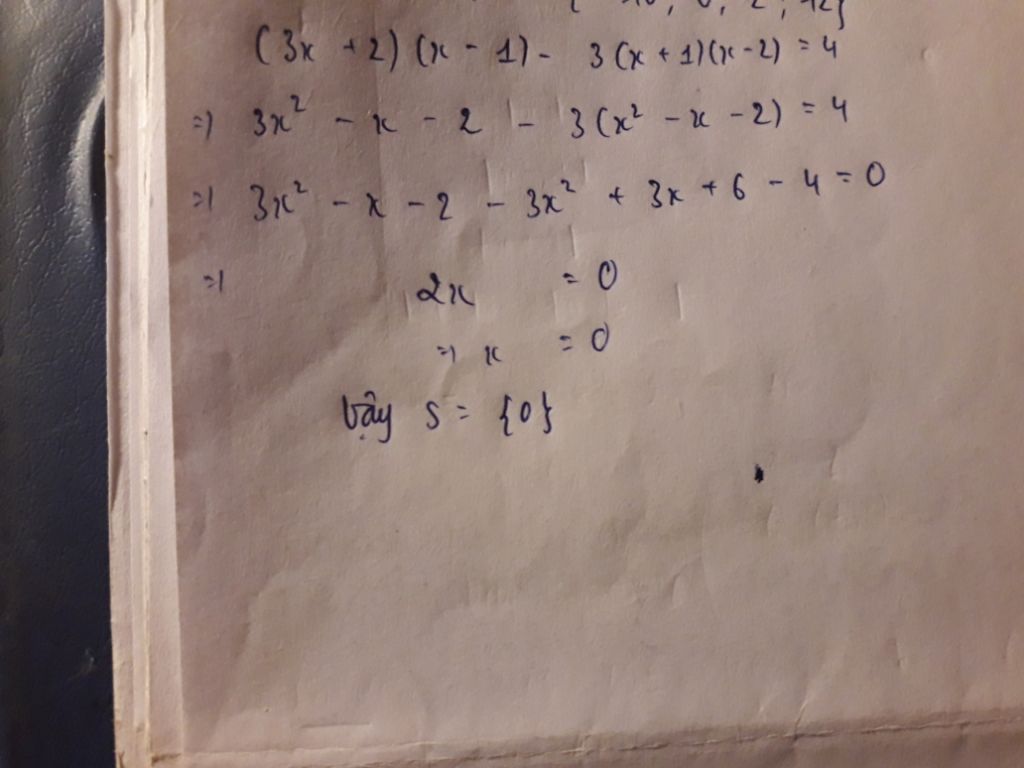 2, 12}
(3x + 2) (x - 1) - 3 (x + 1)(x - 2) = 4
=) 3x² - x - 2 - 3 (x² - x - 2) = 4
=) 3x² - x - 2 - 3x² + 3x + 6 - 4 = 0
=) 2x = 0
=) x = 0
Vậy S = {0}